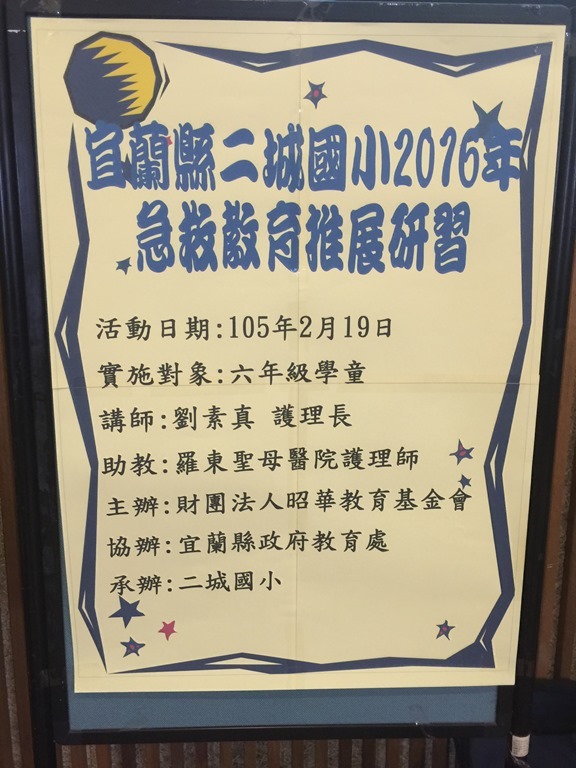 宜蘭縣二城國小2016年
急救教育推展研習
活動日期:105年2月19日
實施對象:六年級學童
講師:劉素真 護理長
助教:羅東聖母醫院護理師
主辦:財團法人昭華教育基金會
協辦:宜蘭縣政府教育處
承辦:二城國小